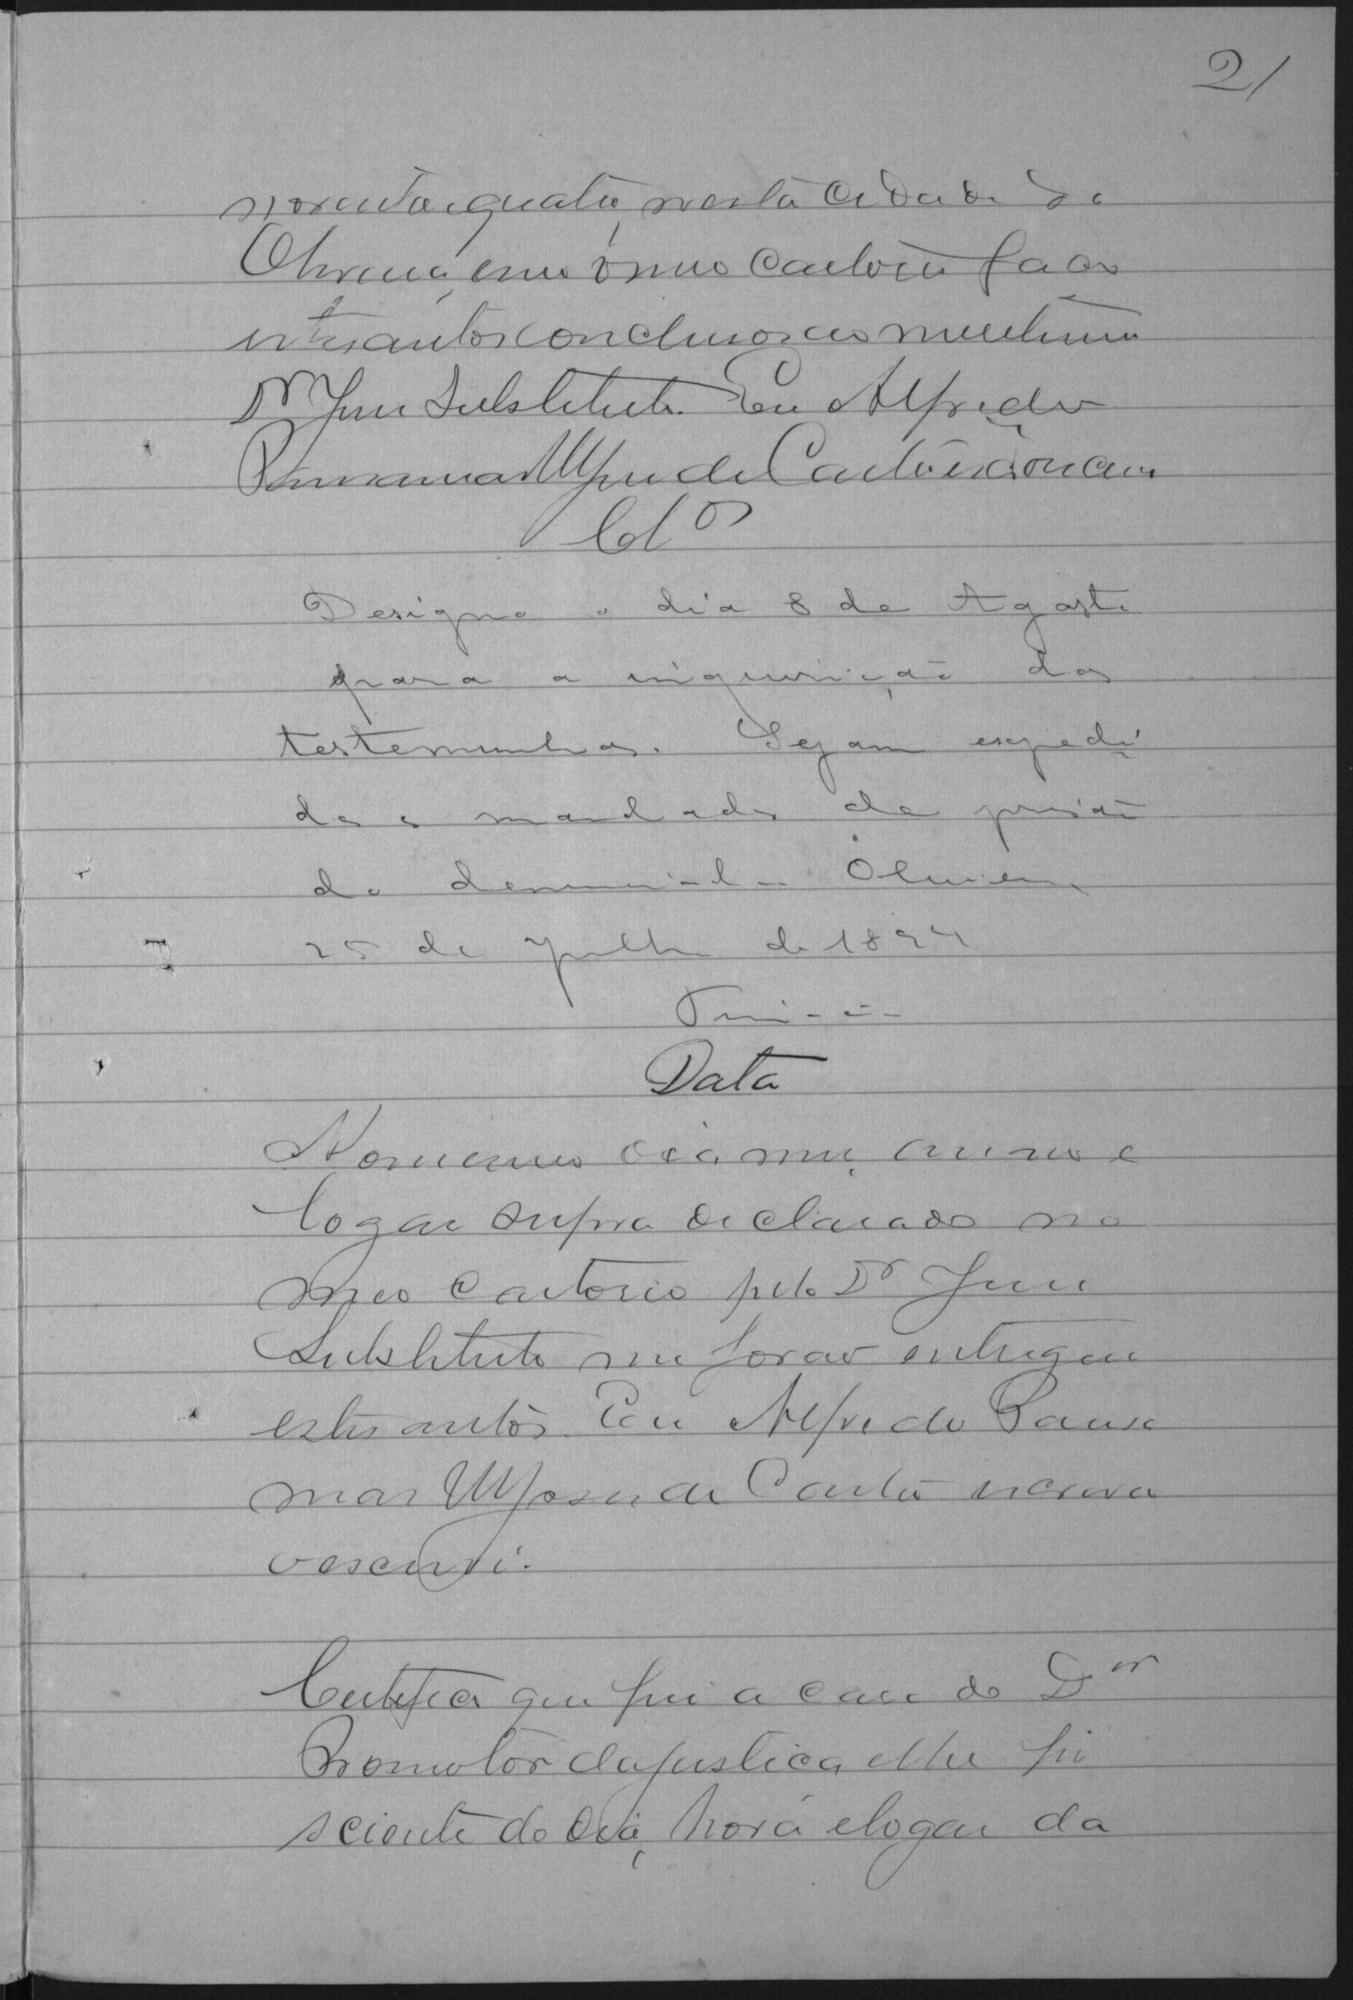 21
noventa e quatro, nesta cidade de
Oliveira, em o meo cartorio faço
estes autos conclusos ao meritissimo
Dr Juiz Substituto. Eu Alfredo
de Castro escrivão
Cl.os
Designo o dia 8 de Agosto
para a inquirição das
testemunhas. Sejam expedi
dos os mandados de prisão
do denunciado. Oliveira
25 de Julho de 1894
Data
No mesmo dia, mez, anno e
logar supra declarado no
meo cartorio pelo Dr Juiz
Substituto me forão entregues
estes autos. Eu Alfredo
de Castro escrivão
o escrevi.
Certifico que fui a casa do Dor
Promotor da justiça e lhe fiz
sciente do dia, hora e logar da